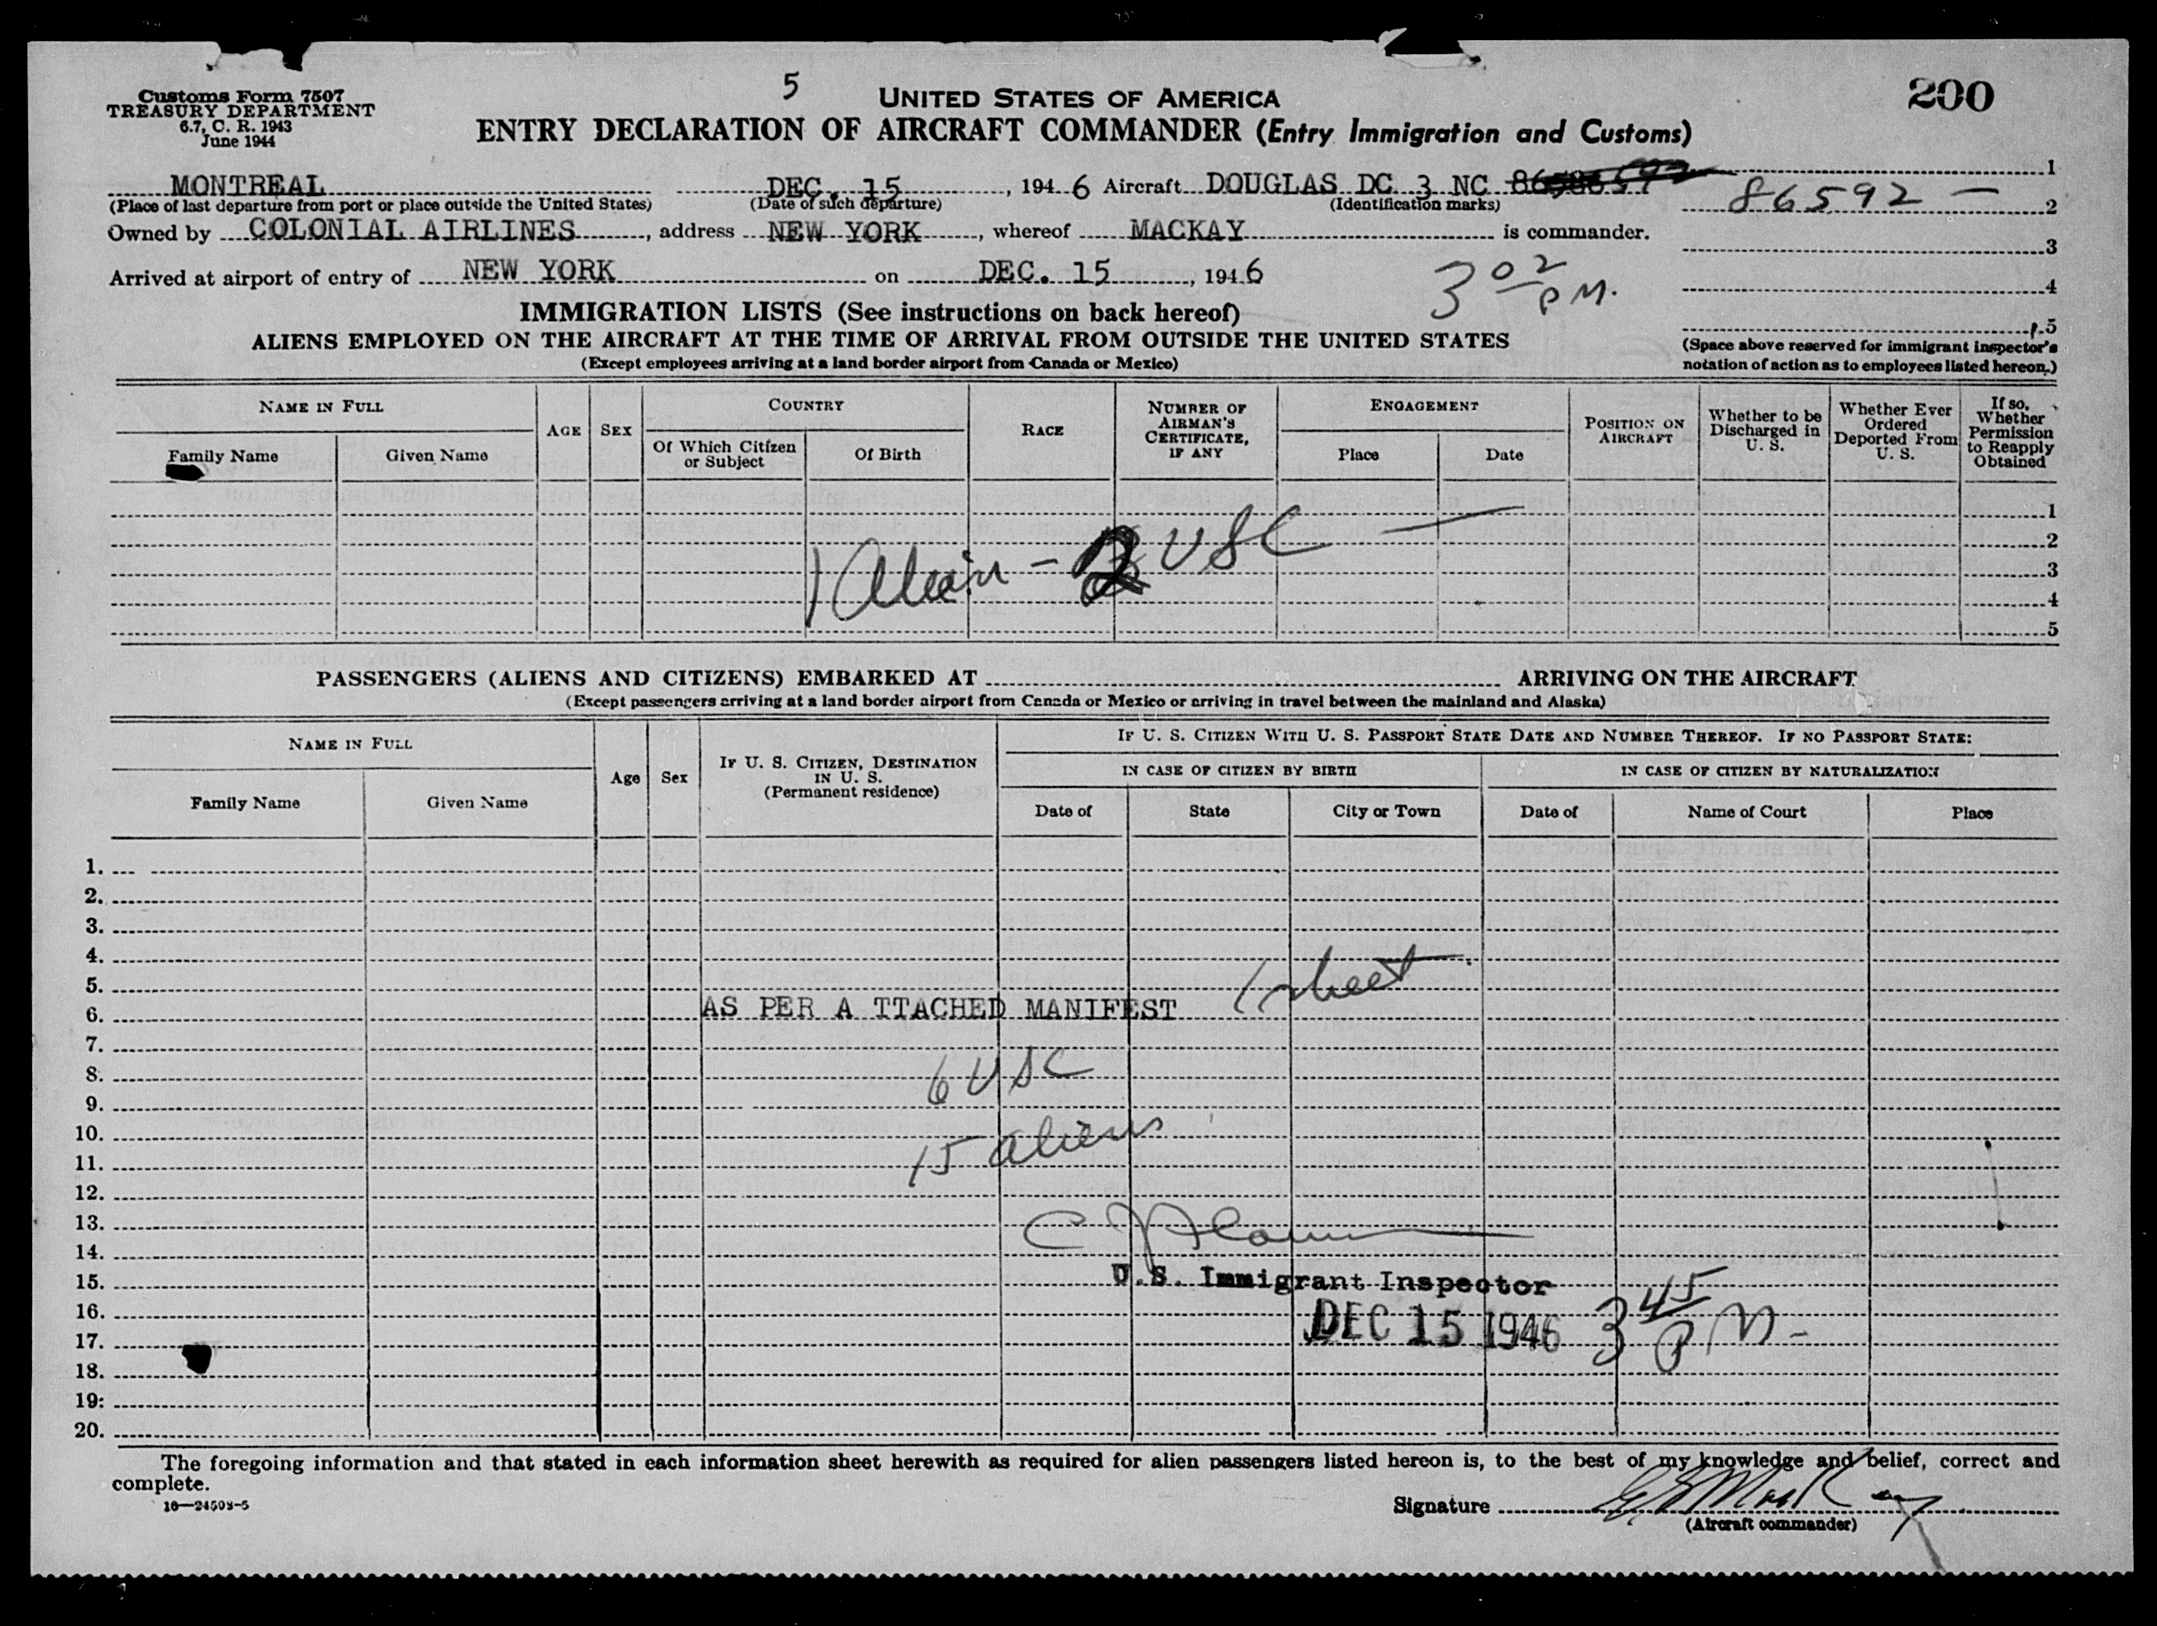 Customs Form 7507
TREASURY DEPARTMENT
6.7, C. R. 1943
June 1944
5
UNITED STATES OF AMERICA
200
ENTRY DECLARATION OF AIRCRAFT COMMANDER (Entry Immigration and Customs)
MONTREAL DEC. 15, 1946 Aircraft DOUGLAS DC 3 NC 1
(Place of last departure from port or place outside the United States) (Date of such departure) (Identification marks) 86592 — 2
Owned by COLONIAL AIRLINES, address NEW YORK, whereof MACKAY is commander. 3
Arrived at airport of entry of NEW YORK on DEC. 15, 1946 3 02 PM. 4
IMMIGRATION LISTS (See instructions on back hereof)
5
ALIENS EMPLOYED ON THE AIRCRAFT AT THE TIME OF ARRIVAL FROM OUTSIDE THE UNITED STATES
(Space above reserved for immigrant inspector's
(Except employees arriving at a land border airport from Canada or Mexico)
notation of action as to employees listed hereon.)
NAME IN FULL
Family Name
Given Name
AGE
SEX
COUNTRY
Of Which Citizen
or Subject
Of Birth
RACE
NUMBER OF
AIRMAN'S
CERTIFICATE,
IF ANY
ENGAGEMENT
Place
Date
POSITION ON
AIRCRAFT
Whether to be
Discharged in
U. S.
Whether Ever
Ordered
Deported From
U. S.
If so,
Whether
Permission
to Reapply
Obtained
1
2
3
4
5
1 Alien - 2 USC —
PASSENGERS (ALIENS AND CITIZENS) EMBARKED AT ARRIVING ON THE AIRCRAFT
(Except passengers arriving at a land border airport from Canada or Mexico or arriving in travel between the mainland and Alaska)
NAME IN FULL
Family Name
Given Name
Age
Sex
IF U. S. CITIZEN, DESTINATION
IN U. S.
(Permanent residence)
IF U. S. CITIZEN WITH U. S. PASSPORT STATE DATE AND NUMBER THEREOF. IF NO PASSPORT STATE:
IN CASE OF CITIZEN BY BIRTH
IN CASE OF CITIZEN BY NATURALIZATION
Date of
State
City or Town
Date of
Name of Court
Place
1.
2.
3.
4.
5.
6. AS PER A TTACHED MANIFEST 1 sheet.
7.
8. 6 USC
9.
10.
11. 15 aliens
12.
13.
14.
15. U.S. Immigrant Inspector
16.
17. DEC 15 1946 3 45 PM -
18.
19.
20.
The foregoing information and that stated in each information sheet herewith as required for alien passengers listed hereon is, to the best of my knowledge and belief, correct and
complete.
16—24503-5
Signature Mackay
(Aircraft commander)